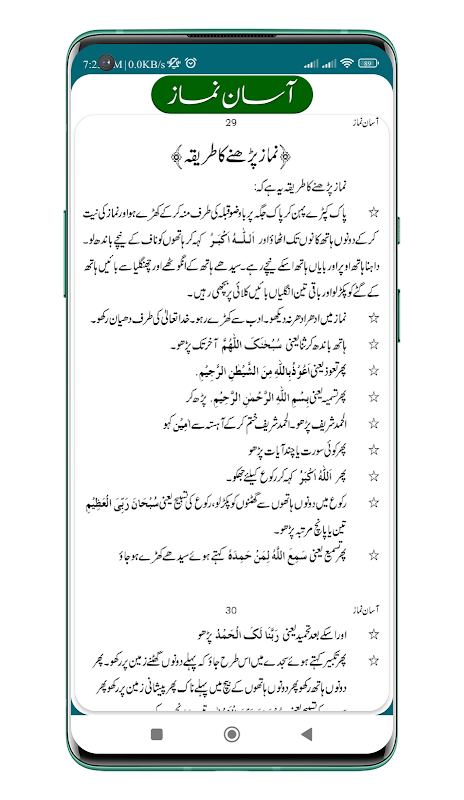 7:2 M | 0.0KB/s 89
آسان نماز
29 آسان نماز
﴿نماز پڑھنے کا طریقہ﴾
نماز پڑھنے کا طریقہ یہ ہے کہ:
☆ پاک کپڑے پہن کر پاک جگہ پر باوضو قبلہ کی طرف منہ کر کے کھڑے ہو اور نماز کی نیت
کر کے دونوں ہاتھ کانوں تک اٹھاؤ اور اَللّٰهُ اَكْبَرُ کہہ کر ہاتھوں کو ناف کے نیچے باندھ لو۔
داہنا ہاتھ اوپر اور بایاں ہاتھ اسکے نیچے رہے۔ سیدھے ہاتھ کے انگوٹھے اور چھنگلیا سے بائیں ہاتھ
کے گٹے کو پکڑ لو اور باقی تین انگلیاں بائیں کلائی پر بچھی رہیں۔
☆ نماز میں ادھر ادھر نہ دیکھو۔ ادب سے کھڑے رہو۔ خدا تعالیٰ کی طرف دھیان رکھو۔
☆ ہاتھ باندھ کر ثنا یعنی سُبْحٰنَکَ اللّٰهُمَّ آخر تک پڑھو۔
☆ پھر تعوذ یعنی اَعُوْذُ بِاللّٰهِ مِنَ الشَّيْطٰنِ الرَّجِيْمِ.
☆ پھر تسمیہ یعنی بِسْمِ اللّٰهِ الرَّحْمٰنِ الرَّحِيْمِ. پڑھ کر
☆ الحمد شریف پڑھو۔ الحمد شریف ختم کر کے آہستہ سے اٰمِيْن کہو
☆ پھر کوئی سورت یا چند آیات پڑھو
☆ پھر اَللّٰهُ اَكْبَرُ کہہ کر رکوع کیلئے جھکو۔
☆ رکوع میں دونوں ہاتھوں سے گھٹنوں کو پکڑ لو، رکوع کی تسبیح یعنی سُبْحَانَ رَبِّىَ الْعَظِيْمِ
تین یا پانچ مرتبہ پڑھو۔
☆ پھر تسمیع یعنی سَمِعَ اللّٰهُ لِمَنْ حَمِدَهٗ کہتے ہوئے سیدھے کھڑے ہو جاؤ
30 آسان نماز
☆ اور اسکے بعد تحمید یعنی رَبَّنَا لَکَ الْحَمْدُ پڑھو
☆ پھر تکبیر کہتے ہوئے سجدے میں اس طرح جاؤ کہ پہلے دونوں گھٹنے زمین پر رکھو۔ پھر
دونوں ہاتھ رکھو پھر دونوں ہاتھوں کے بیچ میں پہلے ناک پھر پیشانی زمین پر رکھو، پھر